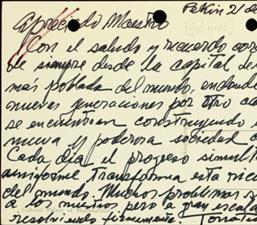 Pekin 21 de
Apreciado Maestro
Con el saludo y recuerdo cor
de siempre desde la capital de
más poblada del mundo, en donde
nuevas generaciones por otro ca
se encuentran construyendo
nueva y poderosa sociedad
Cada día el progreso simult
uniforme transforma esta
del mundo. Muchos problemas s
a los nuestros pero a gran escala
resolviendo firmemente.